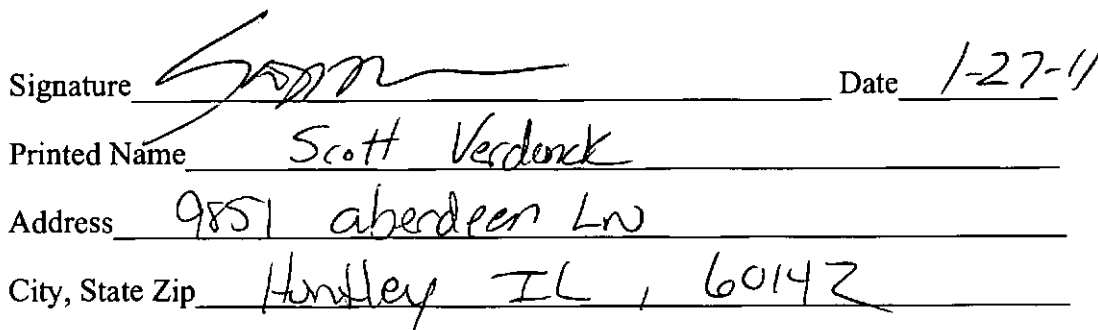 Signature Date 1-27-11
Printed Name Scott Verdonck
Address 9851 aberdeen LN
City, State Zip Huntley IL, 60142